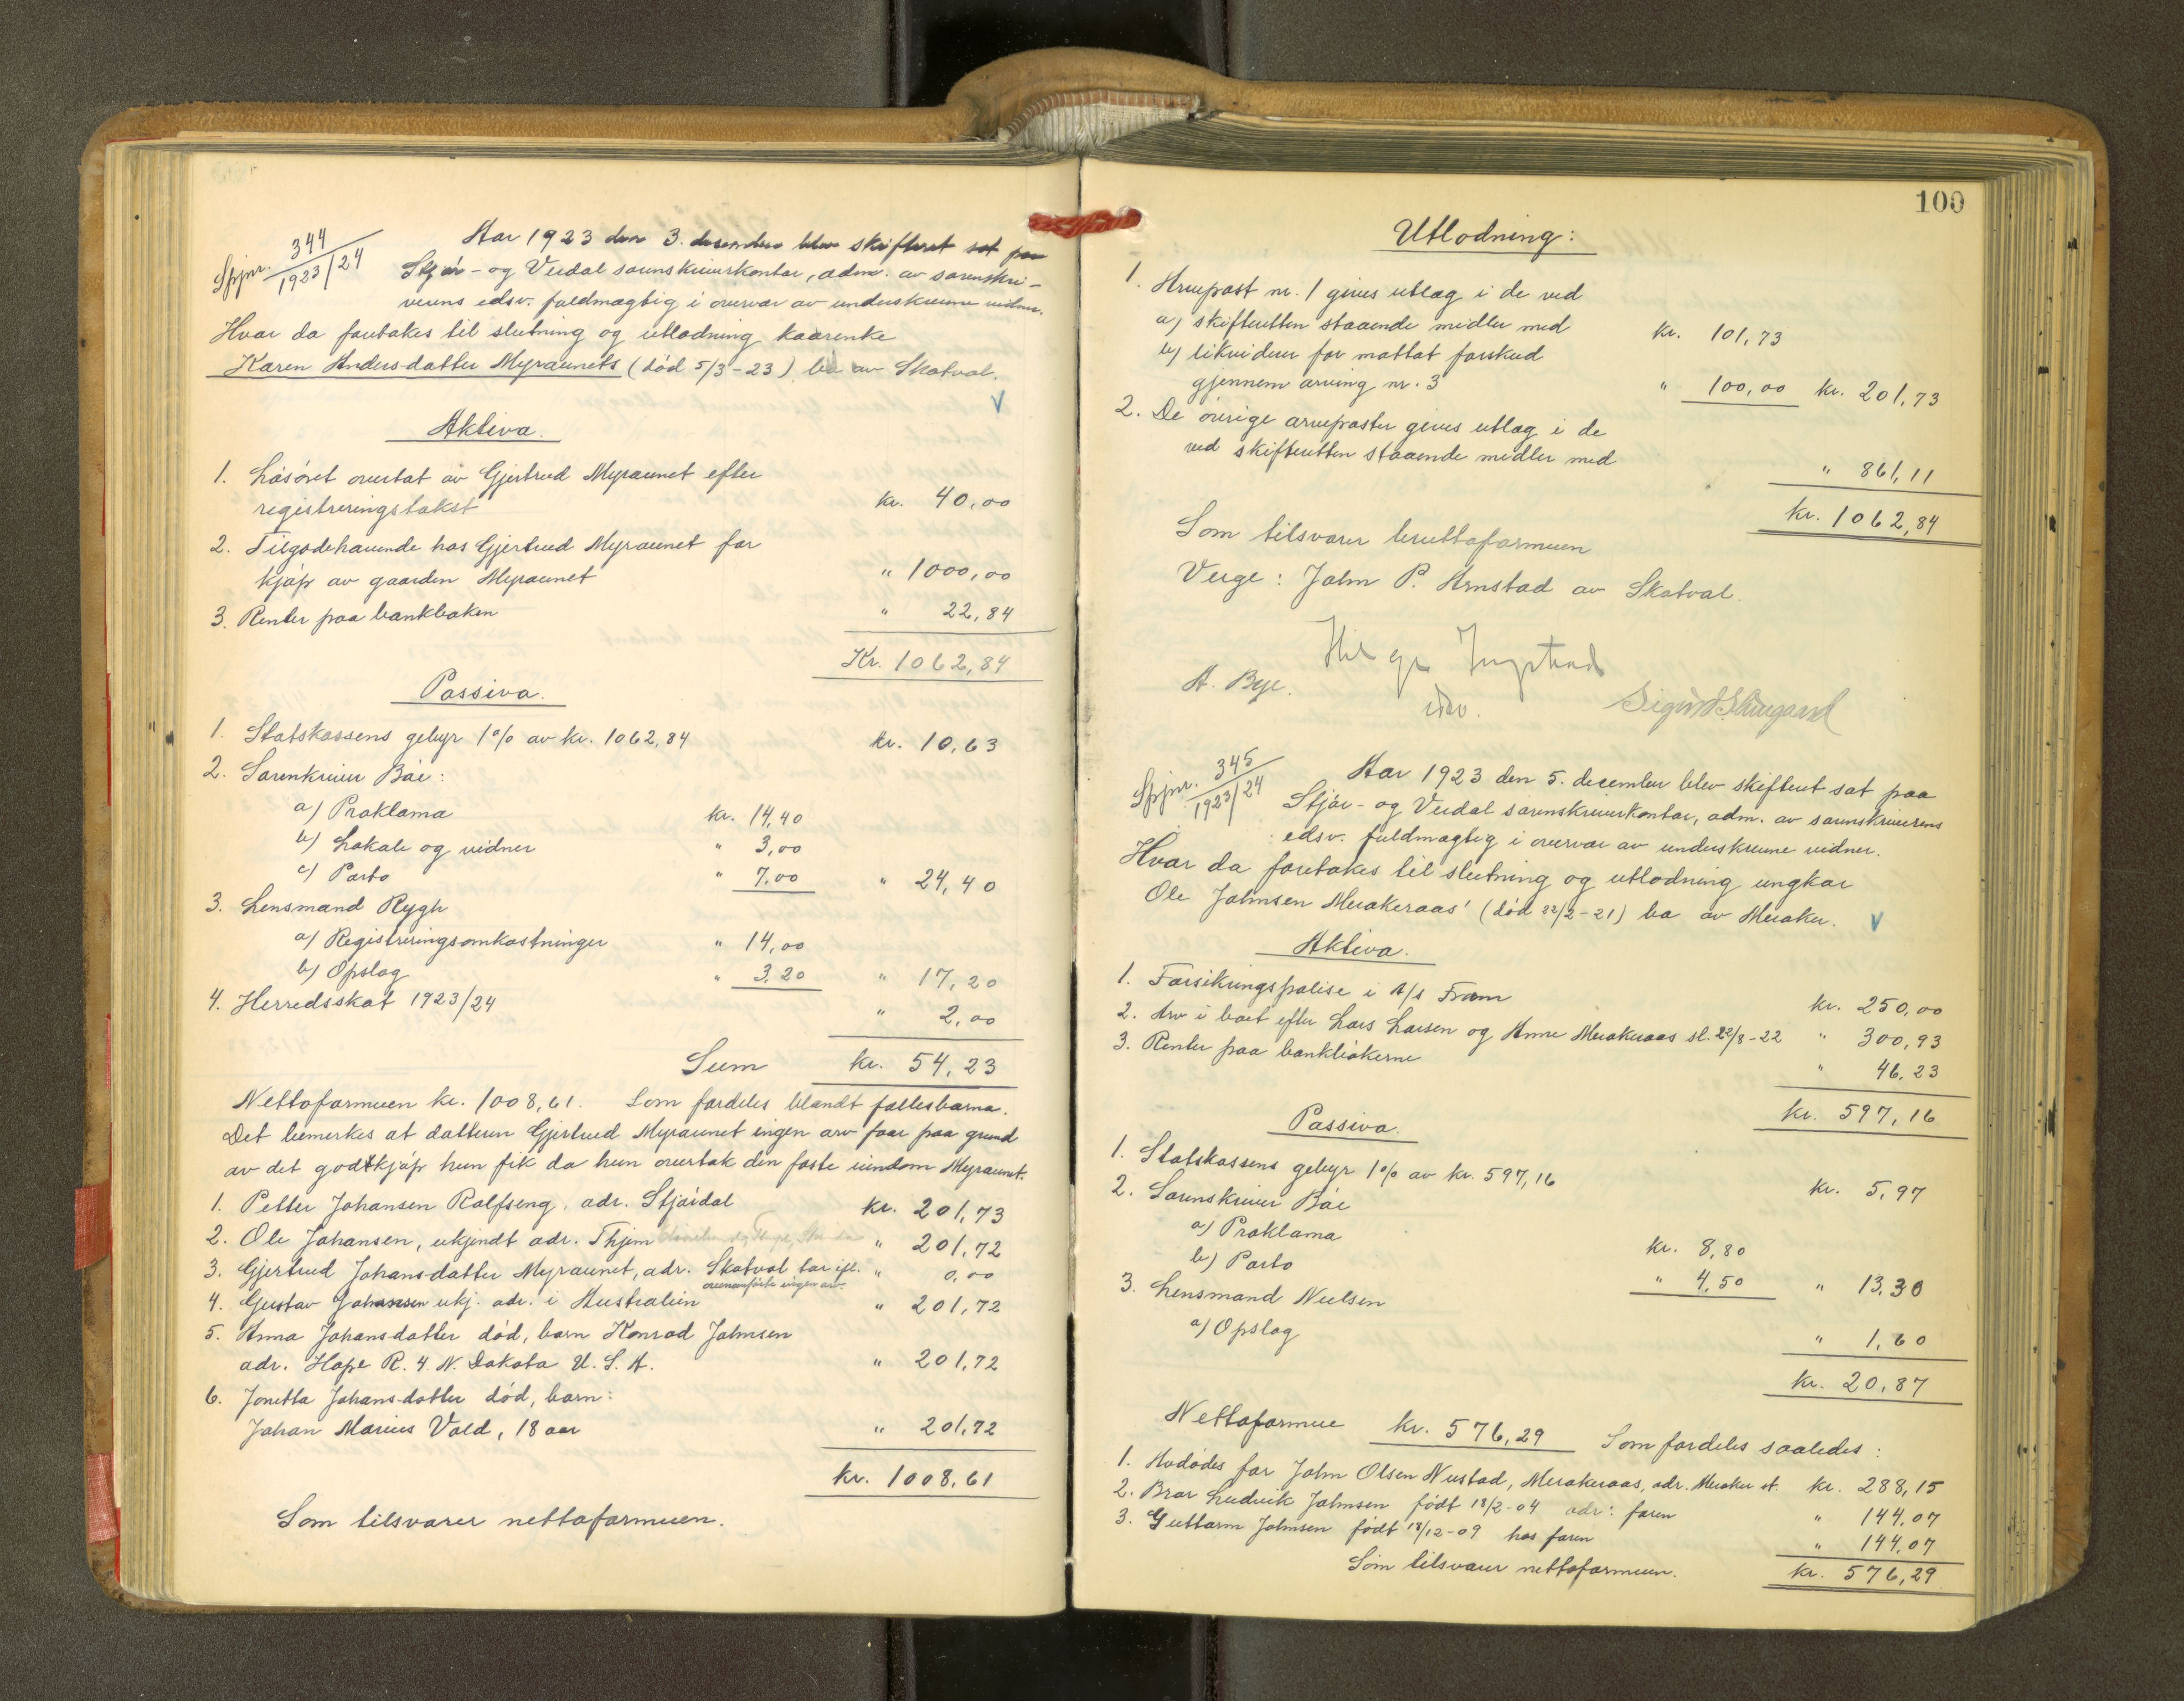 Spjnr. 344
1923/24
Aar 1923 den 3. desember blev skifteret sat paa
Stjør- og Verdal sorenskriverkontor, adm. av sorenskri-
verens edsv. fuldmægtig i overvær av underskrevne vidner.
Hvor da foretokes til slutning og utlodning kaarenke
Karen Andersdatter Myraunets (død 5/3-23) bo av Skatval.
Aktiva.
1. Løsøret overtat av Gjertrud Myraunet efter
registreringstakst kr. 40,00
2. Tilgodehavende hos Gjertrud Myraunet for
kjøp av gaarden Myraunet " 1000,00
3. Renter paa bankboken " 22,84
Kr. 1062,84
Passiva.
1. Statskassens gebyr 1% av kr. 1062,84 kr. 10,63
2. Sorenkriver Bøe:
a) Proklama kr. 14,40
b) Lokale og vidner " 3,00
c) Porto " 7,00 " 24,40
3. Lensmand Rygh
a) Registreringsomkostninger " 14,00
b) Opslag " 3,20 " 17,20
4. Herredsskat 1923/24 " 2,00
Sum kr. 54,23
Nettoformuen kr. 1008,61. Som fordeles blandt fællesbarna.
Det bemerkes at datteren Gjertrud Myraunet ingen arv faar paa grund
av det godtkjøp hun fik da hun overtok den faste eiendom Myraunet.
1. Petter Johansen Ralfseng, adr. Stjørdal kr. 201,73
2. Ole Johansen, ukjendt adr. Thjem " 201,72
3. Gjertrud Johansdatter Myraunet, adr. Skatval har ifl. " 0,00
ovenanførte ingen arv.
4. Gustav Johansen ukj. adr. i Australien " 201,72
5. Anna Johansdatter død, barn Konrad Johnsen
adr. Hope R. 4 N. Dakota U.S.A. " 201,72
6. Jonetta Johansdatter død, barn:
Johan Marius Vold, 18 aar " 201,72
kr. 1008,61
Som tilsvarer nettoformuen.
100
Utlodning:
1. Arvepost nr. 1 gives utlæg i de ved
a) skifteretten staaende midler med kr. 101,73
b) likviderer for mottat forskud
gjennem arving nr. 3 " 100,00 kr. 201,73
2. De øvrige arveposter gives utlæg i de
ved skifteretten staaende midler med " 861,11
kr. 1062,84
Som tilsvarer bruttoformuen
Verge: John P. Arnstad av Skatval.
Helge Ingstad
edsv.
A. Bye.
Spjnr. 345
1923/24
Aar 1923 den 5. december blev skifteret sat paa
Stjør- og Verdal sorenskriverkontor, adm. av sorenskriverens
edsv. fuldmægtig i overvær av underskrevne vidner.
Hvor da foretokes til slutning og utlodning ungkar
Ole Johnsen Merakeraas' (død 22/2-21) bo av Meraker.
Aktiva.
1. Forsikringspolise i A/s Fram kr. 250,00
2. Arv i boet efter Lars Larsen og Anne Merakeraas sl. 22/8-22 " 300,93
3. Renter paa bankbøkerne " 46,23
kr. 597,16
Passiva.
1. Statskassens gebyr 1% av kr. 597,16 kr. 5,97
2. Sorenskriver Bøe
a) Proklama kr. 8,80
b) Porto " 4,50 " 13,30
3. Lensmand Nielsen
a) Opslag " 1,60
kr. 20,87
Nettoformue kr. 576,29 Som fordeles saaledes:
1. Avdødes far John Olsen Nustad, Merakeraas, adr. Meraker st. kr. 288,15
2. Bror Ludvik Johnsen født 18/2-04 adr: faren " 144,07
3. Guttorm Johnsen født 18/12-09 hos faren " 144,07
Som tilsvarer nettoformuen. kr. 576,29